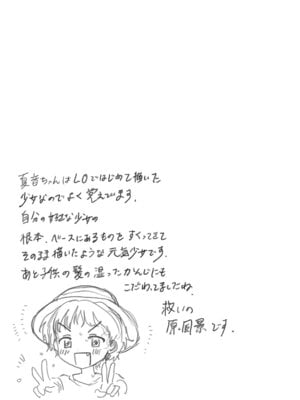 夏音ちゃんはLOではじめて描いた
少女なのでよく覚えてます.
自分の好きな少女の
根本、ベースにあるものをすくってきて
そのまま描いたような元気少女です.
あと子供の髪の湿ったかんじにも
こだわってましたね.
救いの
原風景です.